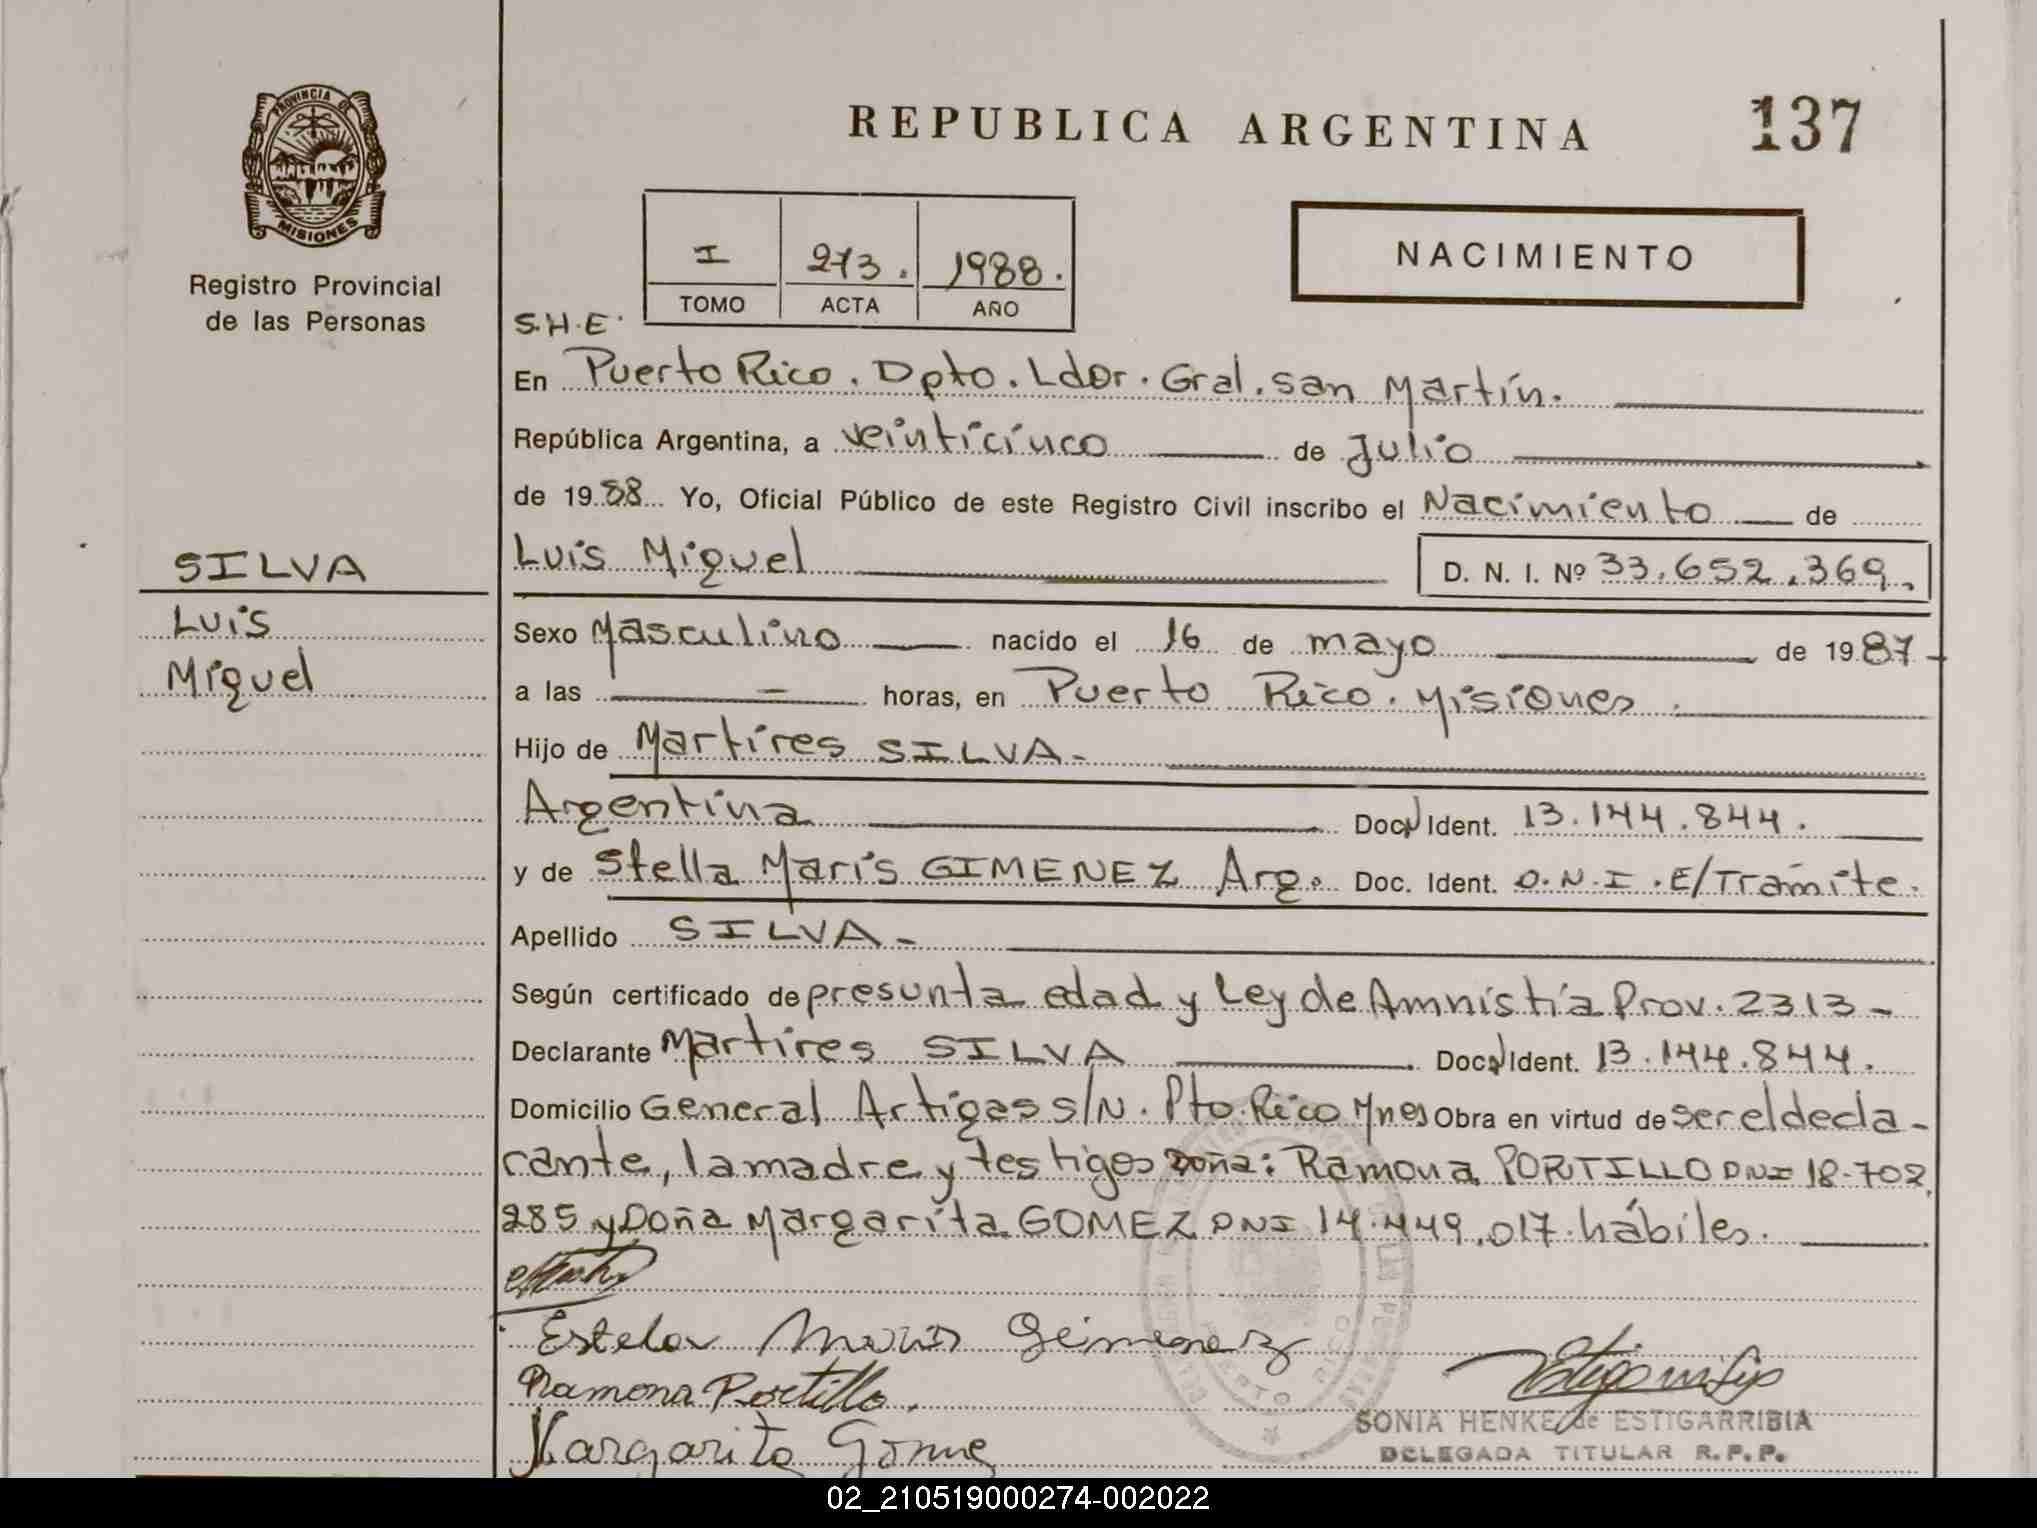 PROVINCIA DE
MISIONES
Registro Provincial
de las Personas
REPUBLICA ARGENTINA
137
I 273. 1988.
TOMO ACTA AÑO
NACIMIENTO
S.H.E.
En Puerto Rico. Dpto. Ldor. Gral. San Martín.
República Argentina, a veinticinco de Julio
de 1988 Yo, Oficial Público de este Registro Civil inscribo el Nacimiento de
SILVA
Luis Miguel D. N. I. Nº 33.652.369.
Luis
Sexo Masculino nacido el 16 de mayo de 1987
Miguel
a las - horas, en Puerto Rico. Misiones.
Hijo de Martires SILVA-
Argentina Doc. Ident. 13.144.844.
y de Stella Maris GIMENEZ Arg. Doc. Ident. D.N.I. E/Trámite.
Apellido SILVA-
Según certificado de presunta edad y Ley de Amnistía Prov. 2313-
Declarante Martires SILVA Doc. Ident. 13.144.844.
Domicilio General Artigas s/N. Pto. Rico Mnes Obra en virtud de ser el decla-
rante, la madre y testigos Doña: Ramona PORTILLO DNI 18.702.
285 y Doña Margarita GOMEZ DNI 14.449.017. hábiles.
Estela Maris Geimenez
Ramona Portillo.
Margarita Gome
SONIA HENKE de ESTIGARRIBIA
DELEGADA TITULAR R.P.P.
02_210519000274-002022